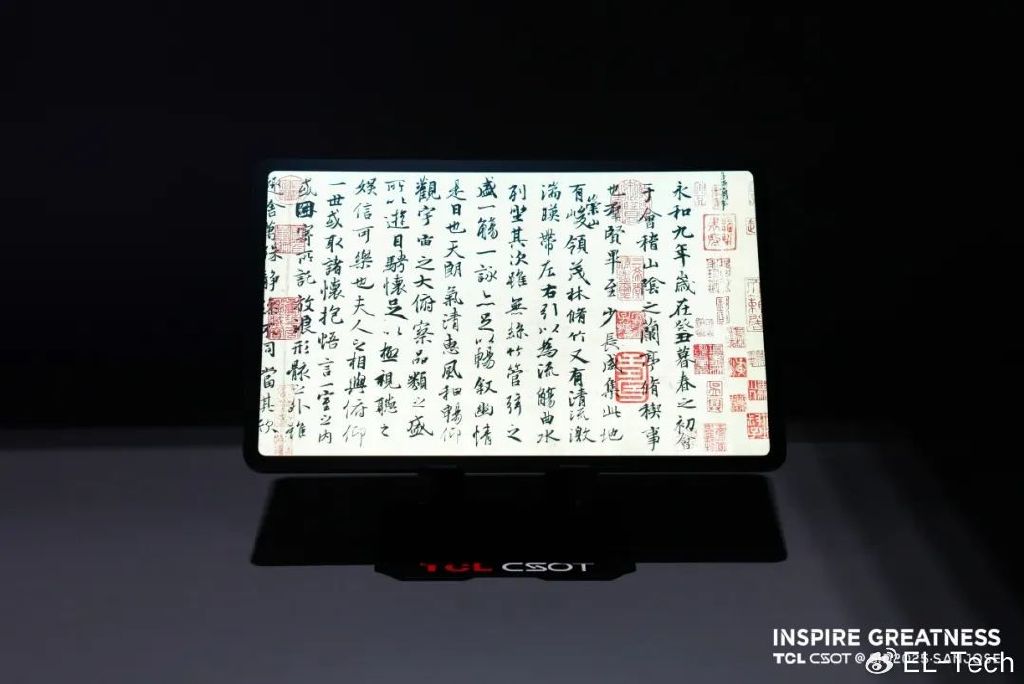 永和九年歲在癸丑暮春之初會
于會稽山陰之蘭亭脩稧事
也羣賢畢至少長咸集此地
有崇山峻領茂林脩竹又有清流激
湍暎帶左右引以為流觴曲水
列坐其次雖無絲竹管弦之
盛一觴一詠亦足以暢敘幽情
是日也天朗氣清惠風和暢仰
觀宇宙之大俯察品類之盛
所以遊目騁懷足以極視聽之
娛信可樂也夫人之相與俯仰
一世或取諸懷抱悟言一室之內
或因寄所託放浪形骸之外雖
趣舍萬殊靜躁不同當其欣
TCL CSOT
INSPIRE GREATNESS
TCL CSOT @ 2025·SAN JOSE
EL-Tech